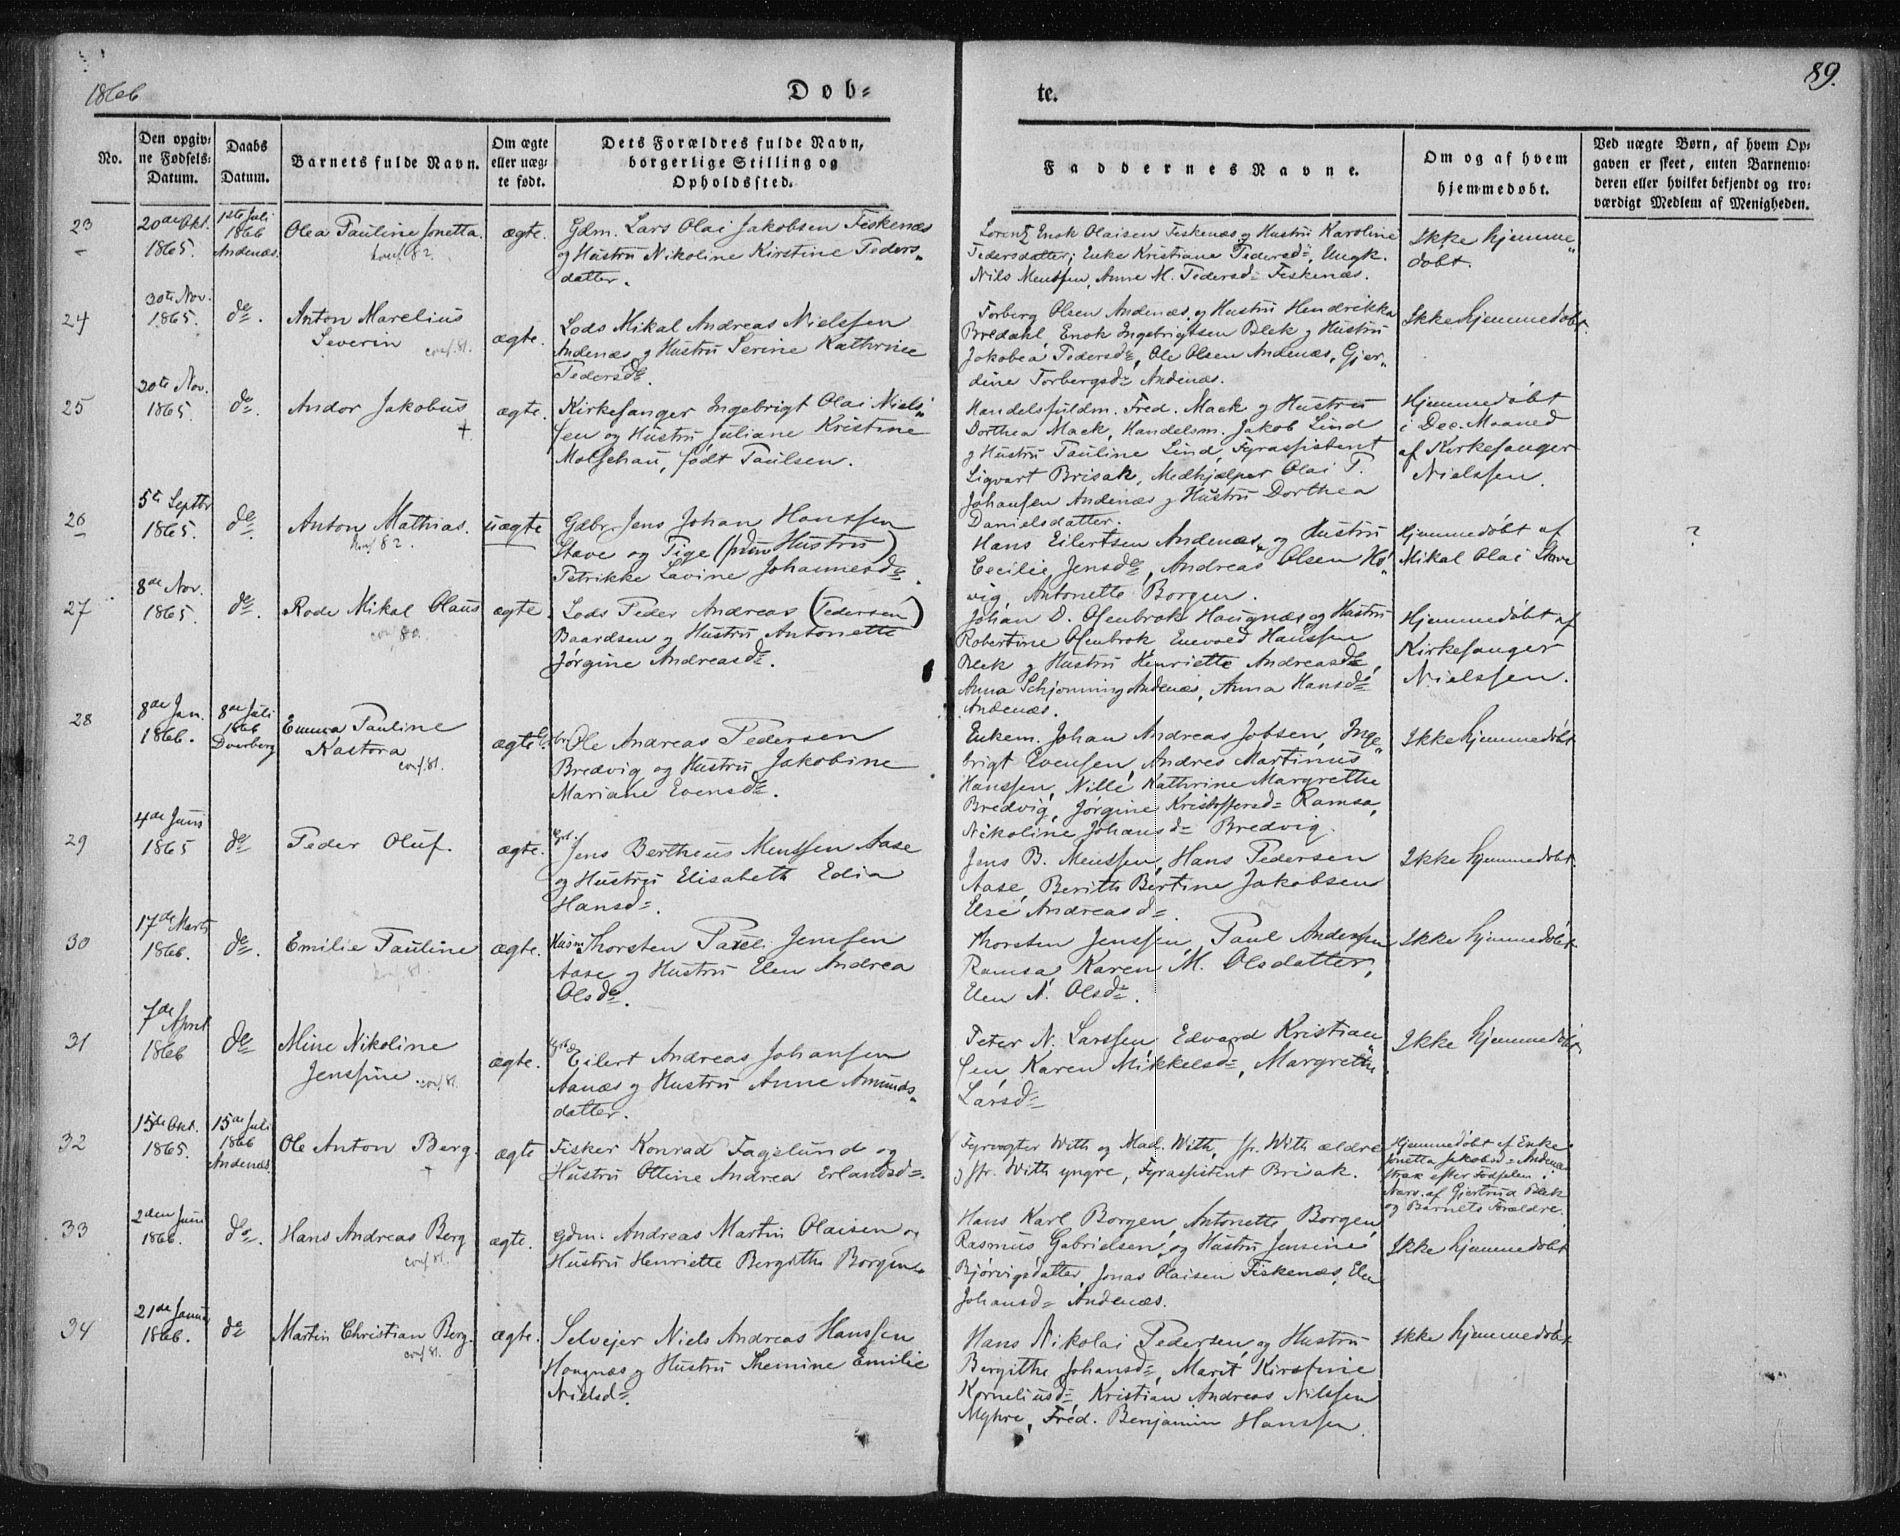 1866
Døb-
te.
89.
No.
Den opgiv-
ne Fødsels-
Datum.
Daabs
Datum.
Barnets fulde Navn.
Om ægte
eller uæg-
te født.
Dets Forældres fulde Navn,
borgerlige Stilling og
Opholdssted.
Faddernes Navne.
Om og af hvem
hjemmedøbt.
Ved uægte Børn, af hvem Op-
gaven er skeet, enten Barnemo-
deren eller hvilket bekjendt og tro-
værdigt Medlem af Menigheden.
23
20de Okt.
1865.
1ste Juli
1866
Andenæs.
Olea Pauline Jonetta.
conf. 82.
ægte.
Gdm. Lars Olai Jakobsen Fiskenæs
og Hustru Nikoline Kirstine Peders-
datter.
Lorentz Enok Olaisen Fiskenæs og Hustru Karoline
Pedersdatter; Enke Kristiane Pedersd., Ungk.
Nils Mentsen, Anne M. Pedersd. Fiskenæs.
Ikke hjemme-
døbt.
24
30te Nov.
1865.
do.
Anton Marelius
Severin
conf. 81.
ægte.
Lods Mikal Andreas Nielssen
Andenæs og Hustru Serine Kathrine
Pedersd.
Torberg Olsen Andenæs og Hustru Hendrikka
Bredahl, Enok Ingebrigtsen Blek og Hustru
Jakobea Pedersd., Ole Olsen Andenæs, Gjer-
dine Torbergsd. Andenæs.
Ikke hjemmedøbt.
25
20te Nov.
1865.
do.
Andor Jakobus
+
ægte.
Kirkesanger Ingebrigt Olai Niels-
sen og Hustru Juliane Kristine
Motschau, født Paulsen.
Handelsfuldm. Fred. Mack og Hustru
Dorthea Mack, Handelsm. Jakob Lind
og Hustru Pauline Lind, Fyrassistent
Sigvart Brisak, Medhjælper Olai P.
Johansen Andenæs og Hustru Dorthea
Danielsdatter.
Hjemmedøbt
i Dec. Maaned
af Kirkesanger
Nielssen.
26
5te Septbr
1865.
do.
Anton Mathias.
Konf 82.
uægte
Gdbr. Jens Johan Hanssen
Stave og Pige Hustru
Petrikke Lavine Johannesd.
Hans Eilertsen Andenæs, og Hustru
Cecilie Jensd., Andreas Olsen Hø-
vig, Antonette Borgen.
Hjemmedøbt af
Mikal Olai Stave
?
27
8de Nov.
1865.
do.
Rode Mikal Olaus
conf. 80.
ægte.
Lods Peder Andreas (Pedersen)
Baardsen og Hustru Antonette
Jørgine Andreasd.
Johan D. Osenbrok Haugnæs, og Hustru
Robertine Osenbrok Enevold Hanssen
Blek og Hustru Henriette Andreasd.,
Anna Schjønning Andenæs, Anna Hansd.
Andenæs.
Hjemmedøbt af
Kirkesanger
Nielssen.
28
8de Jan.
1866.
8de Juli
1866
Dverberg
Emma Pauline
Kastora
conf. 81.
ægte
Ole Andreas Pedersen
Bredvig og Hustru Jakobine
Mariane Evensd.
Enkem. Johan Andreas Jobsen, Inge-
brigt Evensen, Andres Martinus
Hanssen, Nille Kathrine Margrethe
Bredvig, Jørgine Kristoffersd. Ramsa,
Nikoline Johansd. Bredvig.
Ikke hjemmedøbt
29
4de Juni
1865
do
Peder Oluf.
ægte.
Jens Bertheus Mentsen Aase
og Hustru Elisabeth Edia
Hansd.
Jens B. Mentsen, Hans Pedersen
Aase, Berith Bertine Jakobsen
Else Andreasd.
Ikke hjemmedøbt.
30
17de Marts
1866.
do.
Emilie Pauline
ægte.
Husm. Thorsten Paul Jenssen
Aase og Hustru Elen Andrea
Olsd.
Thorsten Jenssen, Paul Anderssen
Ramsa, Karen M. Olsdatter,
Elen N. Olsd.
Ikke hjemmedøbt
31
7de April
1866
do
Mine Nikoline
Jenssine
conf. 81.
ægte.
Eilert Andreas Johansen
Aanæs og Hustru Anne Amunds-
datter.
Peter N. Larssen, Edvard Kristian-
sen, Karen Mikkelsd., Margrethe
Larsd.
Ikke hjemmedøbt
32
15de Okt.
1865.
15de Juli
1866
Andenæs.
Ole Anton Berg.
+
ægte
Fisker Konrad Fagelund og
Hustru Ottine Andrea Erlandsd.
Fyrvogter With og Mad. With, Jfr. With ældre
og Jfr. With yngre, Fyrassistent Brisak.
Hjemmedøbt af Enke
Jonetta Jakobsd. Andenæs
strax efter Fødselen.
Nærv. af Gjertrud Blek
og Barnets Forældre.
33
2den Juni
1866.
do.
Hans Andreas Berg
conf. 81.
ægte.
Gdm. Andreas Martin Olaisen og
Hustru Henriette Bergithe Borgen.
Hans Karl Borgen, Antonette Borgen,
Rasmus Gabrielsen, og Hustru Jensine
Bjørvigsdatter, Jonas Olaisen Fiskenæs, Elen
Johansd. Andenæs.
Ikke hjemmedøbt
34
21de Januar
1866.
do
Martin Christian Berg.
conf. 81.
ægte.
Selvejer Niels Andreas Hanssen
Haugnæs og Hustru Themine Emilie
Nielsd.
Hans Nikolai Pedersen og Hustru
Bergithe Johansd., Marit Kirstine
Korneliusd., Kristian Andreas Nilssen
Myhre, Fred. Benjamin Hanssen.
Ikke hjemmedøbt